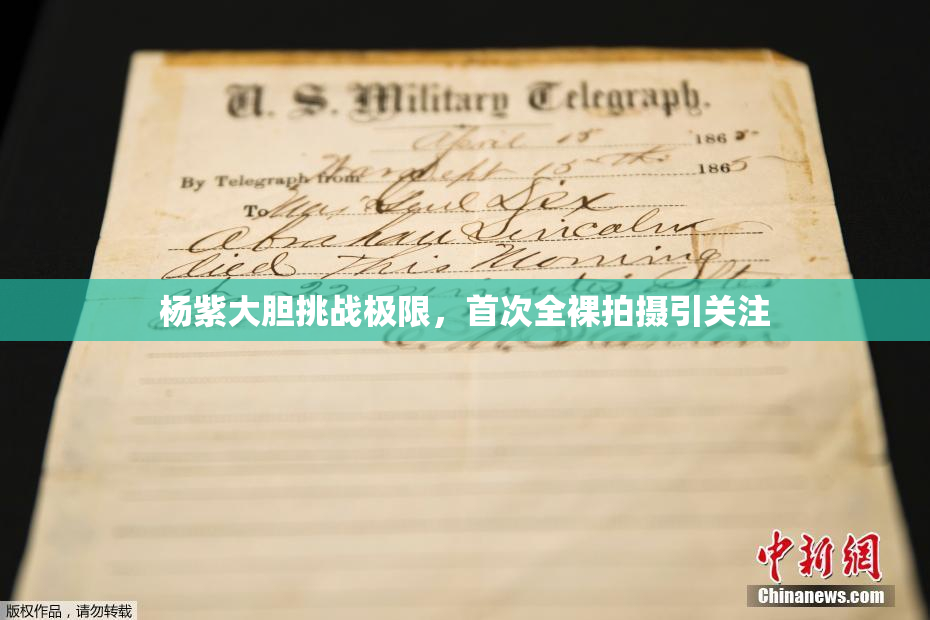 U. S. Military Telegraph.
April 15 1865
By Telegraph from War Dept 15th 1865
To Maj Genl Dix
Abraham Lincoln
died This Morning
at 22 minutes after
杨紫大胆挑战极限，首次全裸拍摄引关注
中新网
Chinanews.com
版权作品，请勿转载